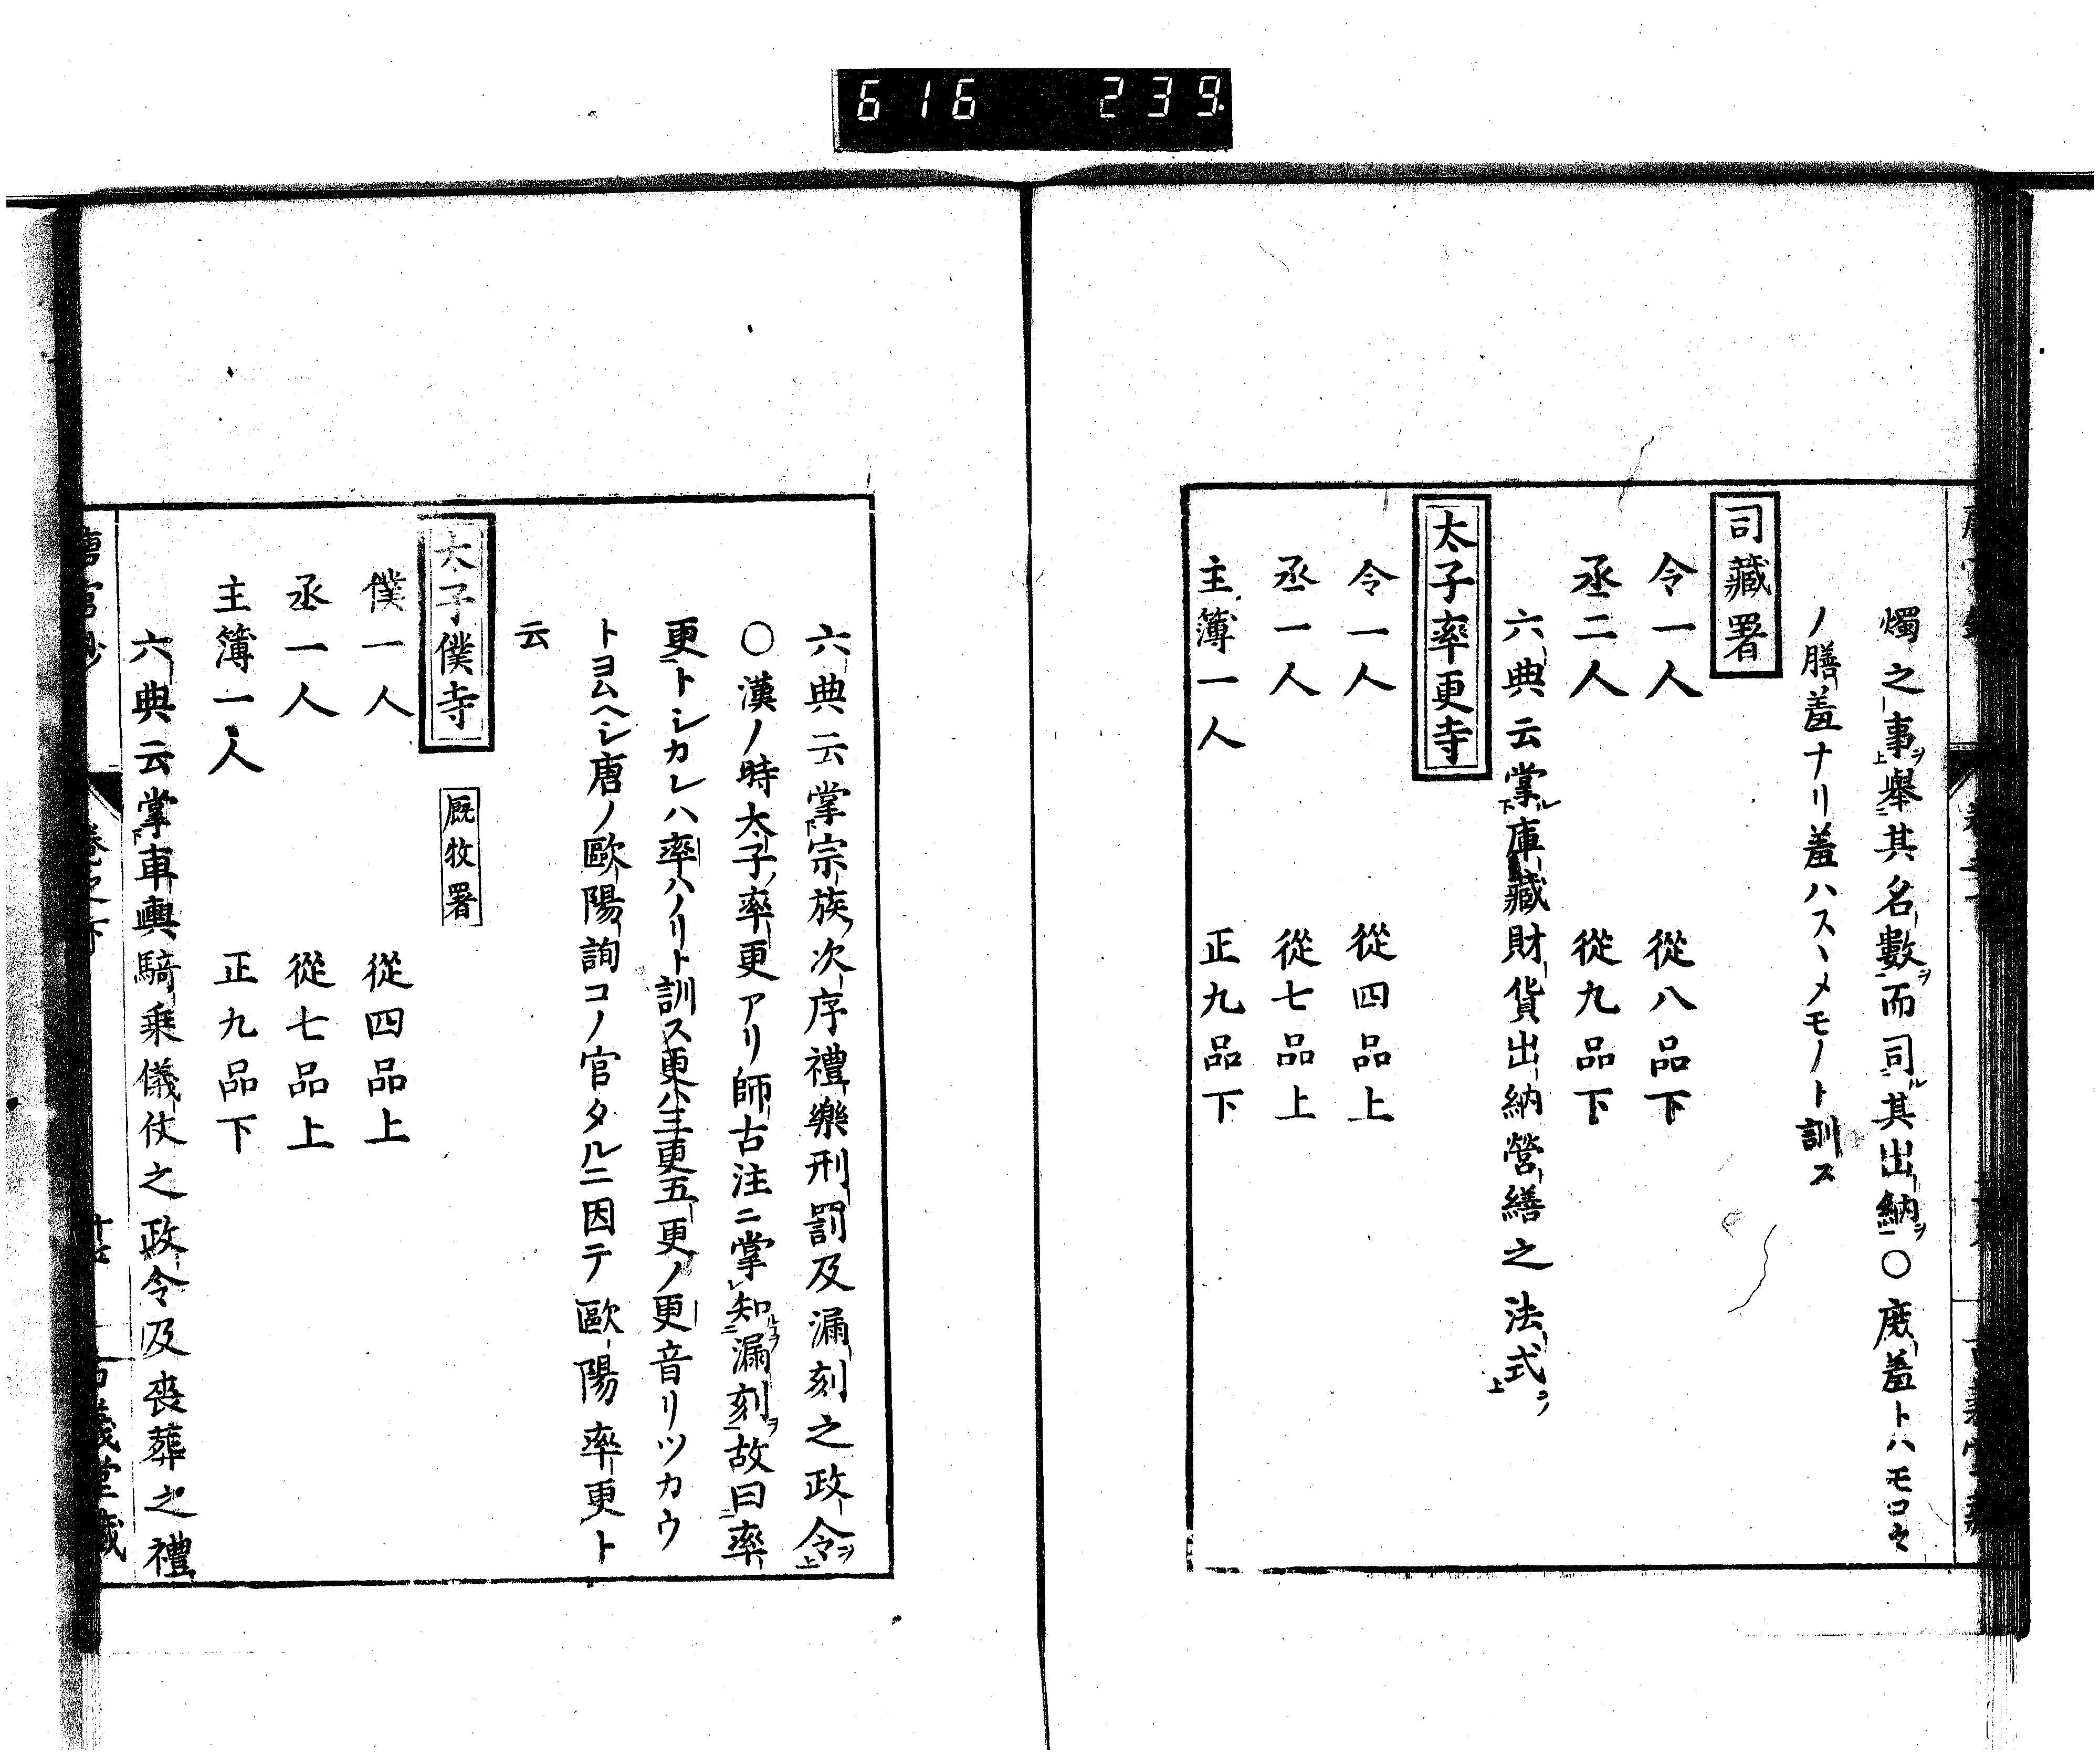 616 239
燭之事擧其名數而司其出納○庶羞トハモロモロ
ノ膳羞ナリ羞ハスヽメモノト訓ス
司藏署
令一人 從八品下
丞二人 從九品下
六典云掌庫藏財貨出納營繕之法式
太子率更寺
令一人 從四品上
丞一人 從七品上
主簿一人 正九品下
六典云掌宗族次序禮樂刑罰及漏刻之政令
○漢ノ時太子率更アリ師古注ニ掌知漏刻故曰率
更トシカレハ率ハノリト訓ス更ハ三更五更ノ更音リツカウ
トヨムヘシ唐ノ歐陽詢コノ官タルニ因テ歐陽率更ト
云
太子僕寺 厩牧署
僕一人 從四品上
丞一人 從七品上
主簿一人 正九品下
六典云掌車輿騎乘儀仗之政令及喪葬之禮
唐官鈔 卷之下 古義堂藏